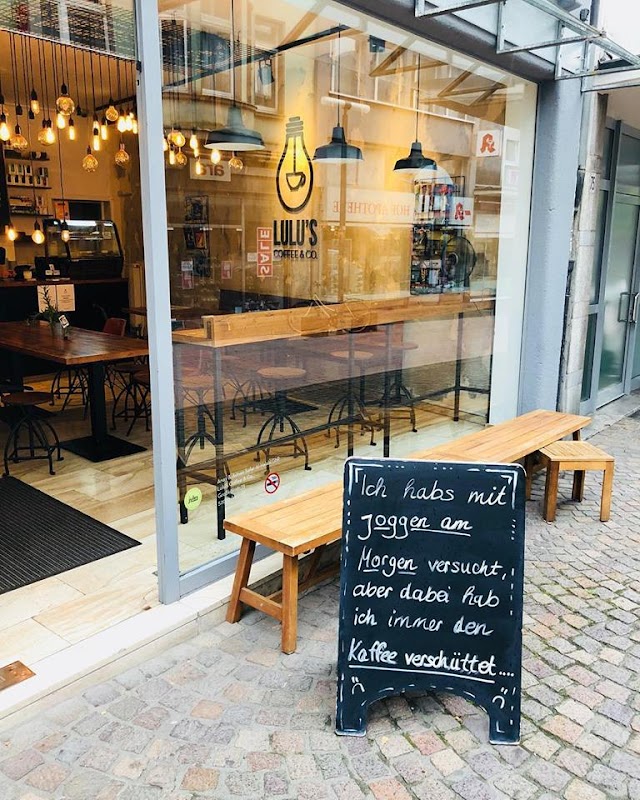 LULU'S
COFFEE & CO.
SALE
HOF APOTHEKE
Ich habs mit
Joggen am
Morgen versucht,
aber dabei hab
ich immer den
Kaffee verschüttet....